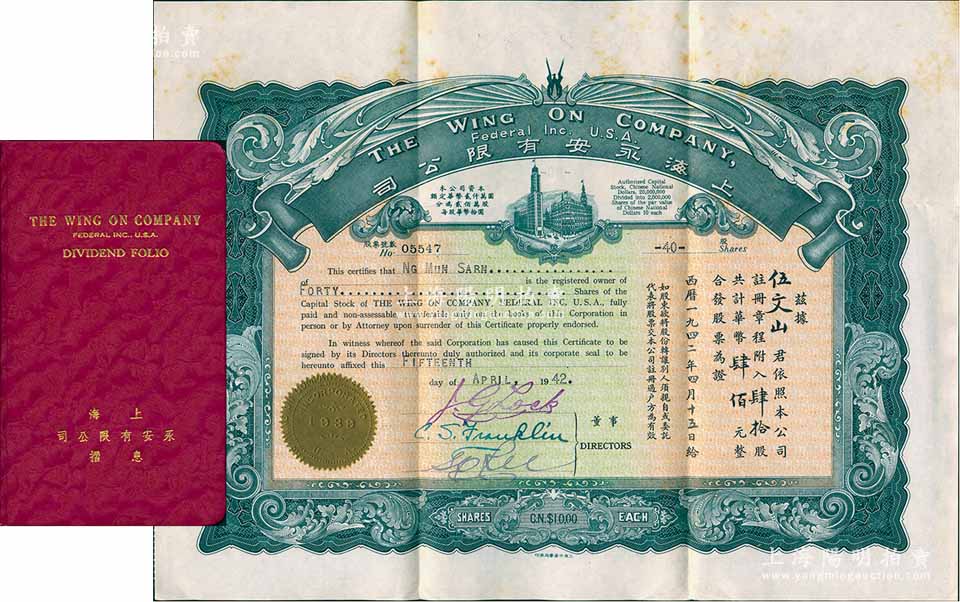 THE WING ON COMPANY
FEDERAL INC., U.S.A.
DIVIDEND FOLIO
海上
司公限有安永
摺息
THE WING ON COMPANY,
Federal Inc. U.S.A.
司公限有安永海上
本公司資本
額定華幣貳仟萬圓
分為貳佰萬股
每股華幣拾圓
Authorized Capital
Stock, Chinese National
Dollars, 20,000,000
Divided into 2,000,000
Shares of the par value
of Chinese National
Dollars 10 each
股票號數
No. 05547
-40- 股
Shares
This certifies that NG MUN SARN
of is the registered owner of
FORTY Shares of the
Capital Stock of THE WING ON COMPANY, FEDERAL INC. U.S.A., fully
paid and non-assessable transferable only on the books of the Corporation in
person or by Attorney upon surrender of this Certificate properly endorsed.
In witness whereof the said Corporation has caused this Certificate to be
signed by its Directors thereunto duly authorized and its corporate seal to be
hereunto affixed this FIFTEENTH
day of APRIL, 1942.
茲據
伍文山君依照本公司
註冊章程附入肆拾股
共計華幣肆佰元整
合發股票為證
西曆一九四二年四月十五日給
如股東欲將股份轉讓別人須親自或委託
代表將股票交本公司註冊過戶方為有效
1939
C. S. Franklin
董事
DIRECTORS
SHARES C.N. $10.00 EACH
上海陽明拍賣
www.yangmingauction.com